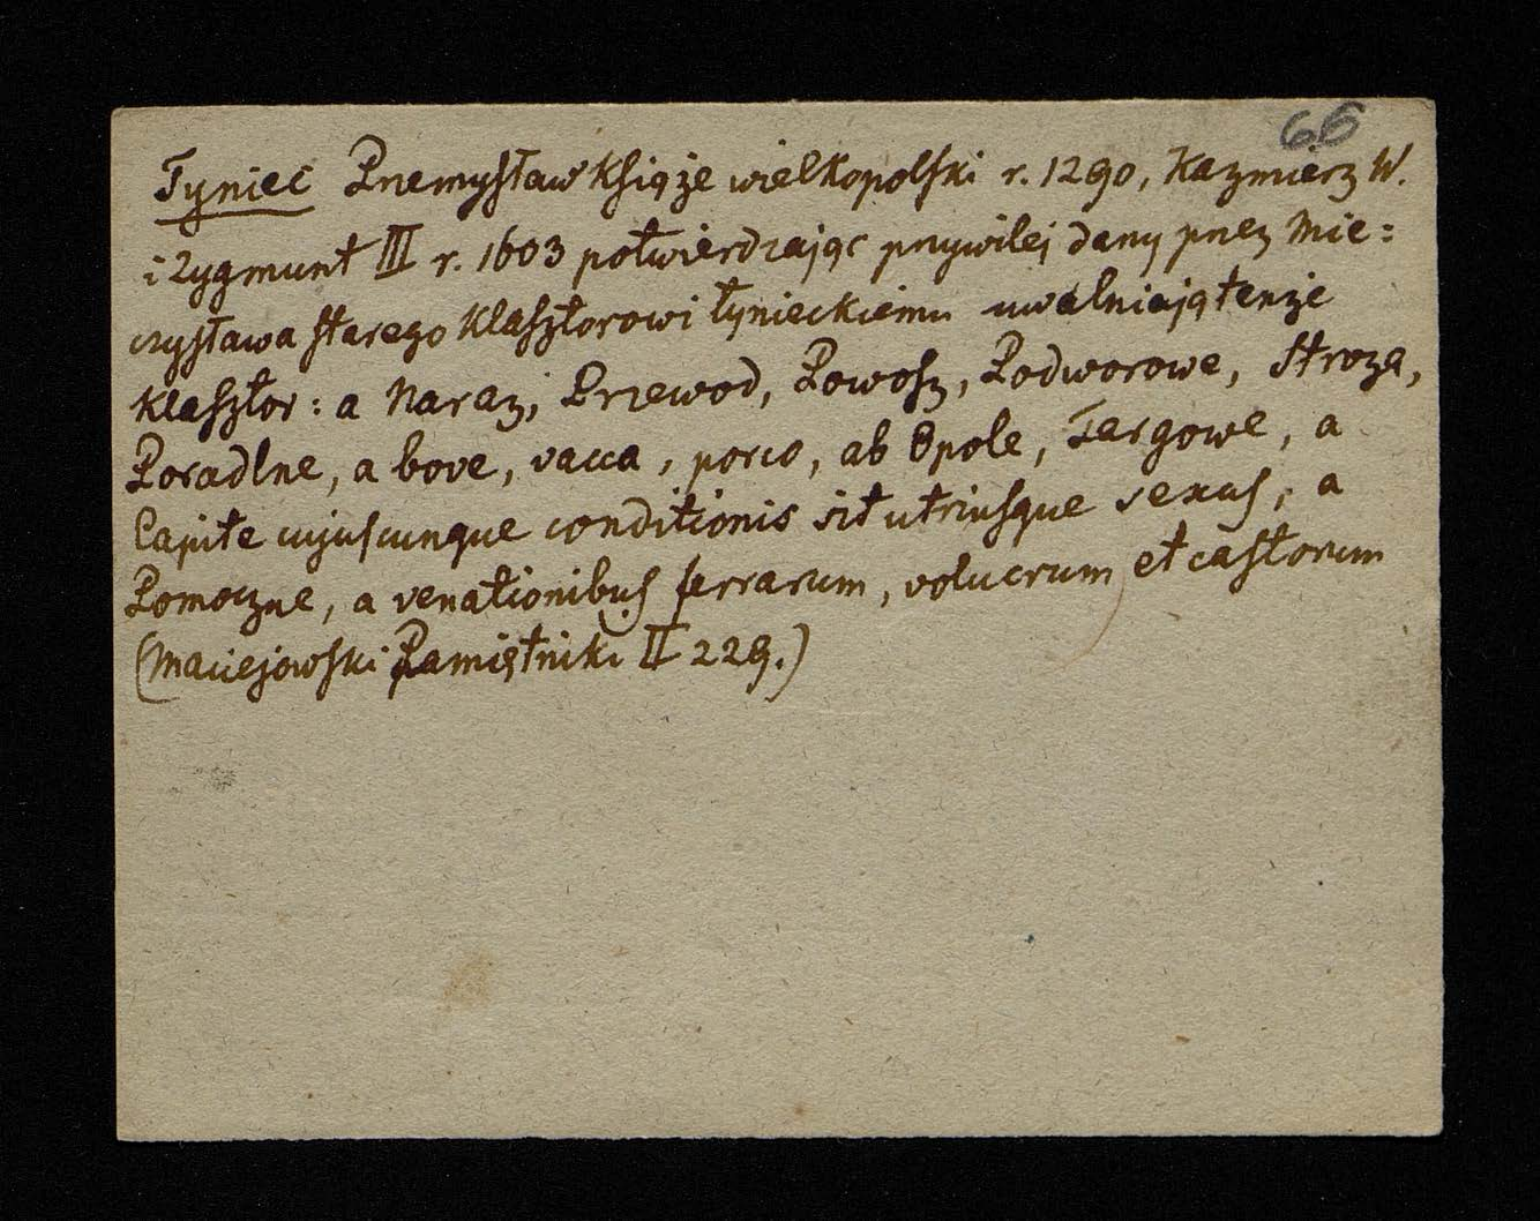 66
Tyniec Przemysław Książe wielkopolski r. 1290, Kazmierz W.
i Zygmunt III r. 1603 potwierdzając przywilej dany przez Mie=
czysława starego Klasztorowi tynieckiemu uwalniają tenże
Klasztor: a Naraz, Przewod, Powosz, Podworowe, Stroza,
Poradlne, a bove, vacca, porco, ab Opole, Targowe, a
Capite cujuscunque conditionis sit utriusque sexus, a
Pomoczne, a venationibus ferrarum, volucrum et castorum
(Maciejowski Pamiętniki II 229.)